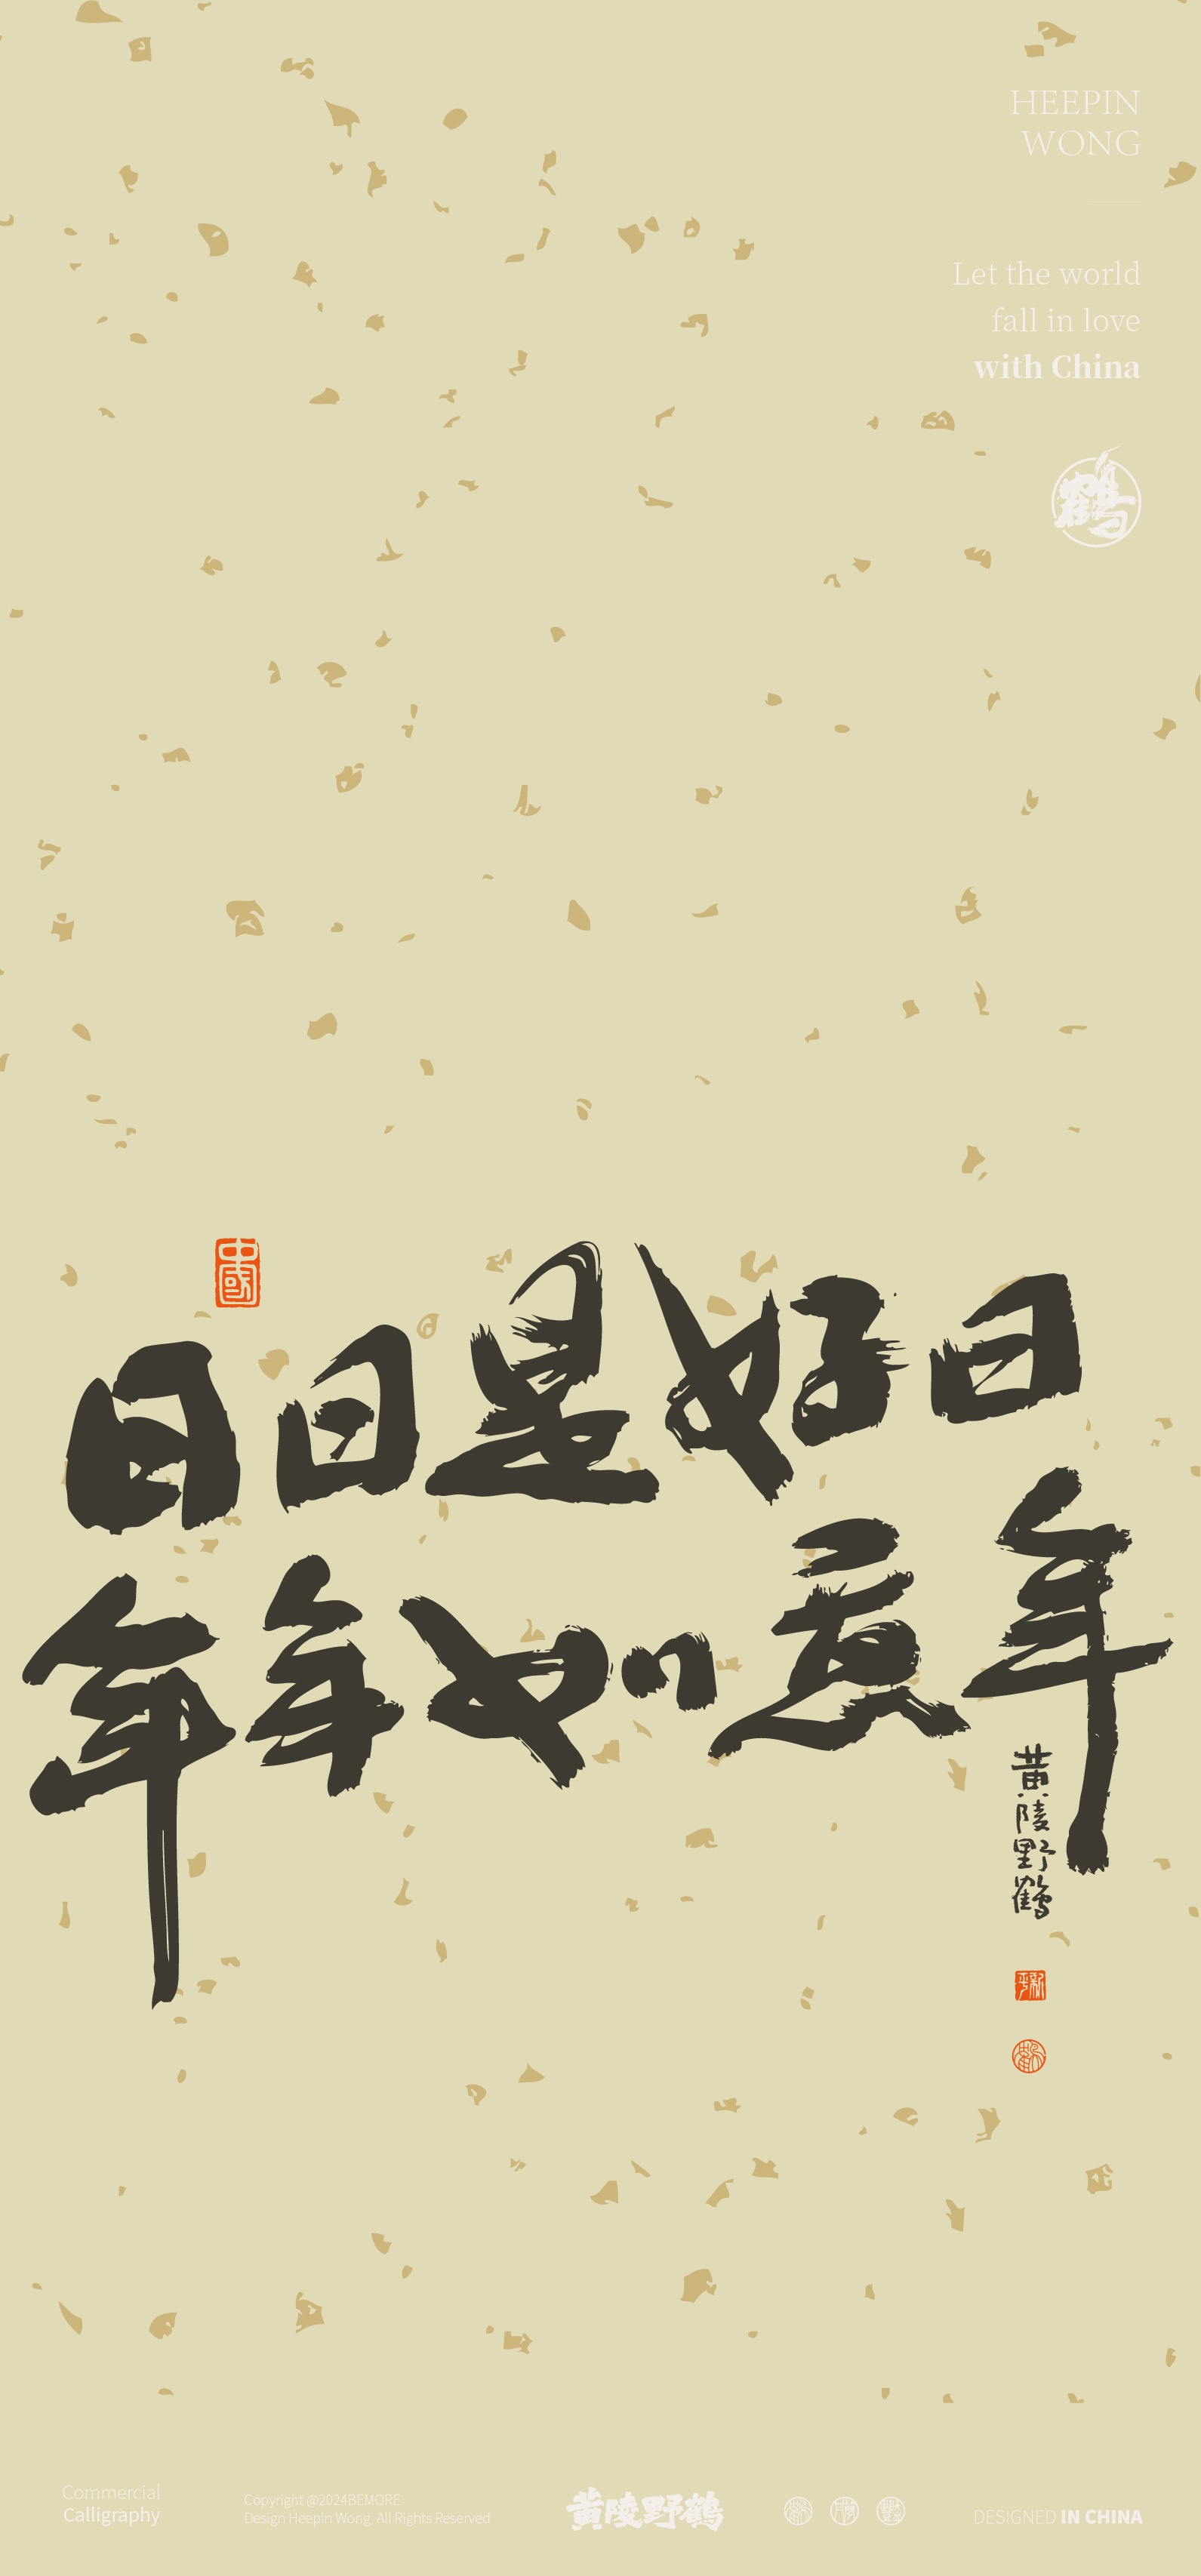 HEEPIN
WONG
Let the world
fall in love
with China
鶴
中國
日日是好日
年年如意年
黄陵野鶴
Commercial
Calligraphy
Copyright @2024BEMORE
Design Heepin Wong All Rights Reserved
黄陵野鶴
DESIGNED IN CHINA